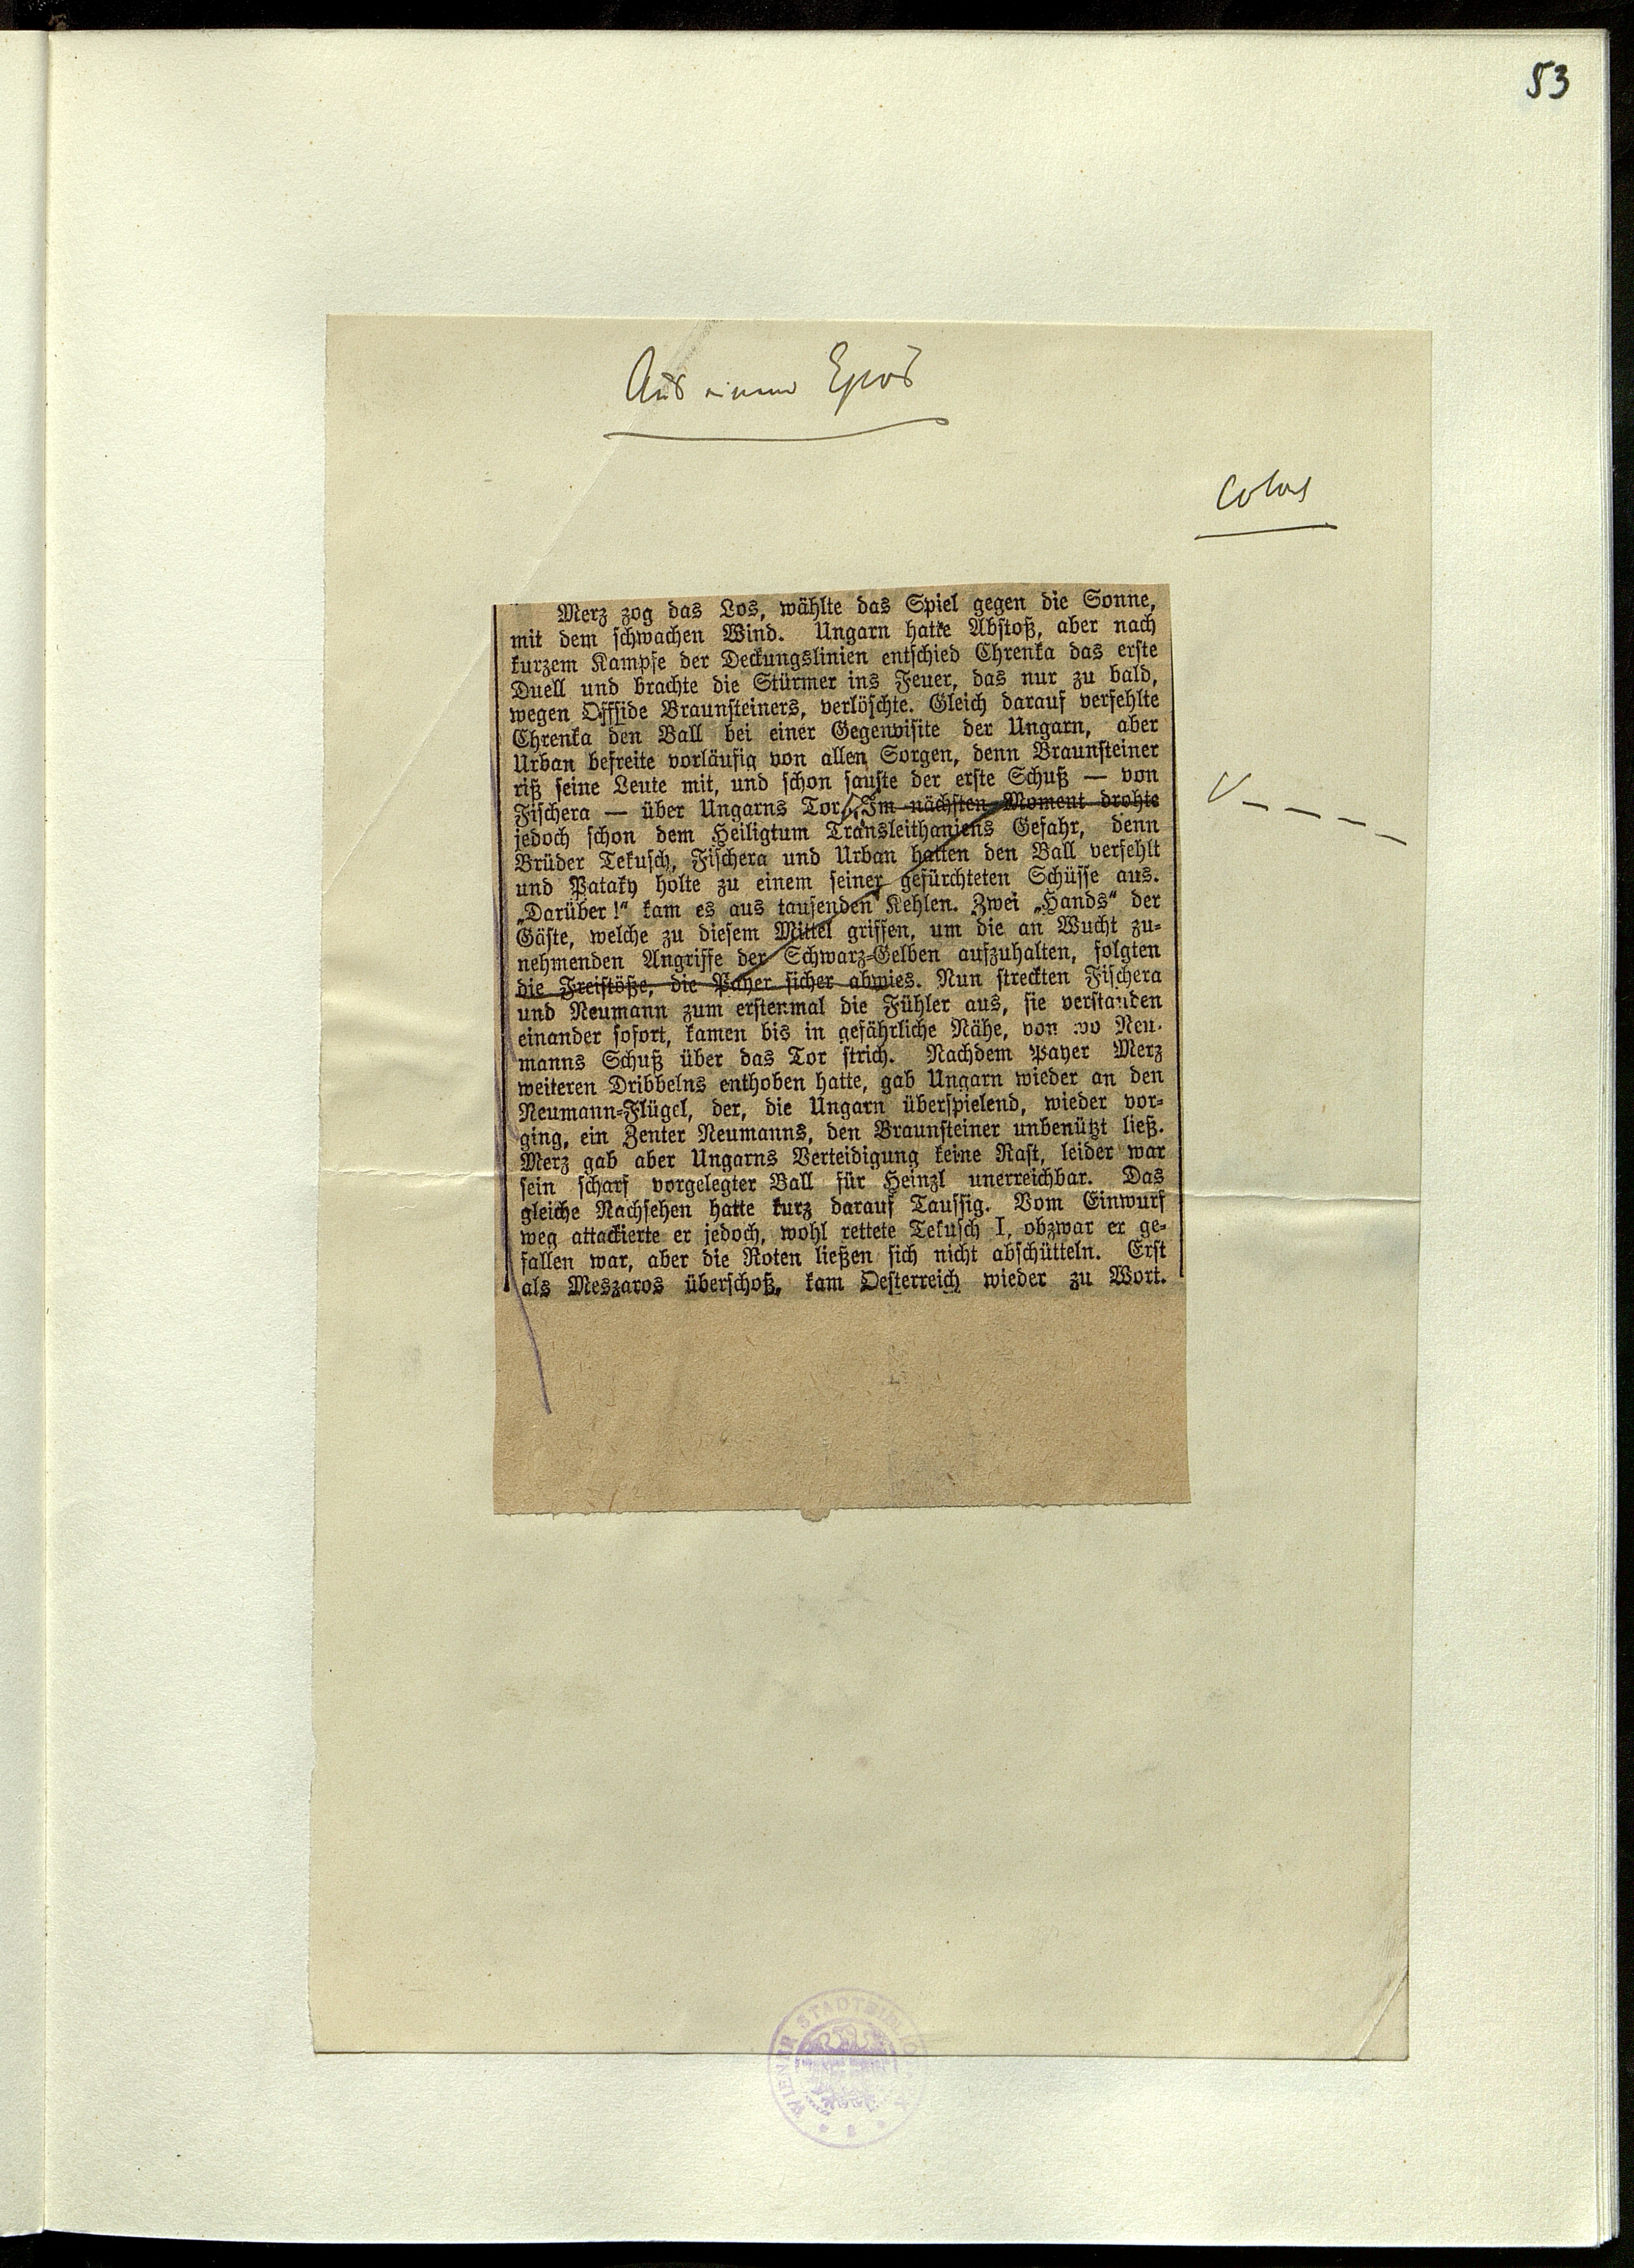 53
Aus einem Epos
Colos
Merz zog das Los, wählte das Spiel gegen die Sonne,
mit dem schwachen Wind. Ungarn hatte Abstoß, aber nach
kurzem Kampfe der Deckungslinien entschied Chrenka das erste
Duell und brachte die Stürmer ins Feuer, das nur zu bald,
wegen Offside Braunsteiners, verlöschte. Gleich darauf verfehlte
Chrenka den Ball bei einer Gegenvisite der Ungarn, aber
Urban befreite vorläufig von allen Sorgen, denn Braunsteiner
riß seine Leute mit, und schon sauste der erste Schuß — von
Fischera — über Ungarns Tor. Im nächsten Moment drohte
jedoch schon dem Heiligtum Transleithaniens Gefahr, denn
Brüder Tekusch, Fischera und Urban hatten den Ball verfehlt
und Pataky holte zu einem seiner gefürchteten Schüsse aus.
„Darüber!“ kam es aus tausenden Kehlen. Zwei „Hands“ der
Gäste, welche zu diesem Mittel griffen, um die an Wucht zu-
nehmenden Angriffe der Schwarz-Gelben aufzuhalten, folgten
die Freistöße, die Payer sicher abwies. Nun streckten Fischera
und Neumann zum erstenmal die Fühler aus, sie verstanden
einander sofort, kamen bis in gefährliche Nähe, von wo Neu-
manns Schuß über das Tor strich. Nachdem Payer Merz
weiteren Dribbelns enthoben hatte, gab Ungarn wieder an den
Neumann-Flügel, der, die Ungarn überspielend, wieder vor-
ging, ein Zenter Neumanns, den Braunsteiner unbenützt ließ.
Merz gab aber Ungarns Verteidigung keine Rast, leider war
sein scharf vorgelegter Ball für Heinzl unerreichbar. Das
gleiche Nachsehen hatte kurz darauf Taussig. Vom Einwurf
weg attackierte er jedoch, wohl rettete Tekusch I, obzwar er ge-
fallen war, aber die Roten ließen sich nicht abschütteln. Erst
als Meszaros überschoß, kam Oesterreich wieder zu Wort.
WIENER STADTBIBLIOTHEK